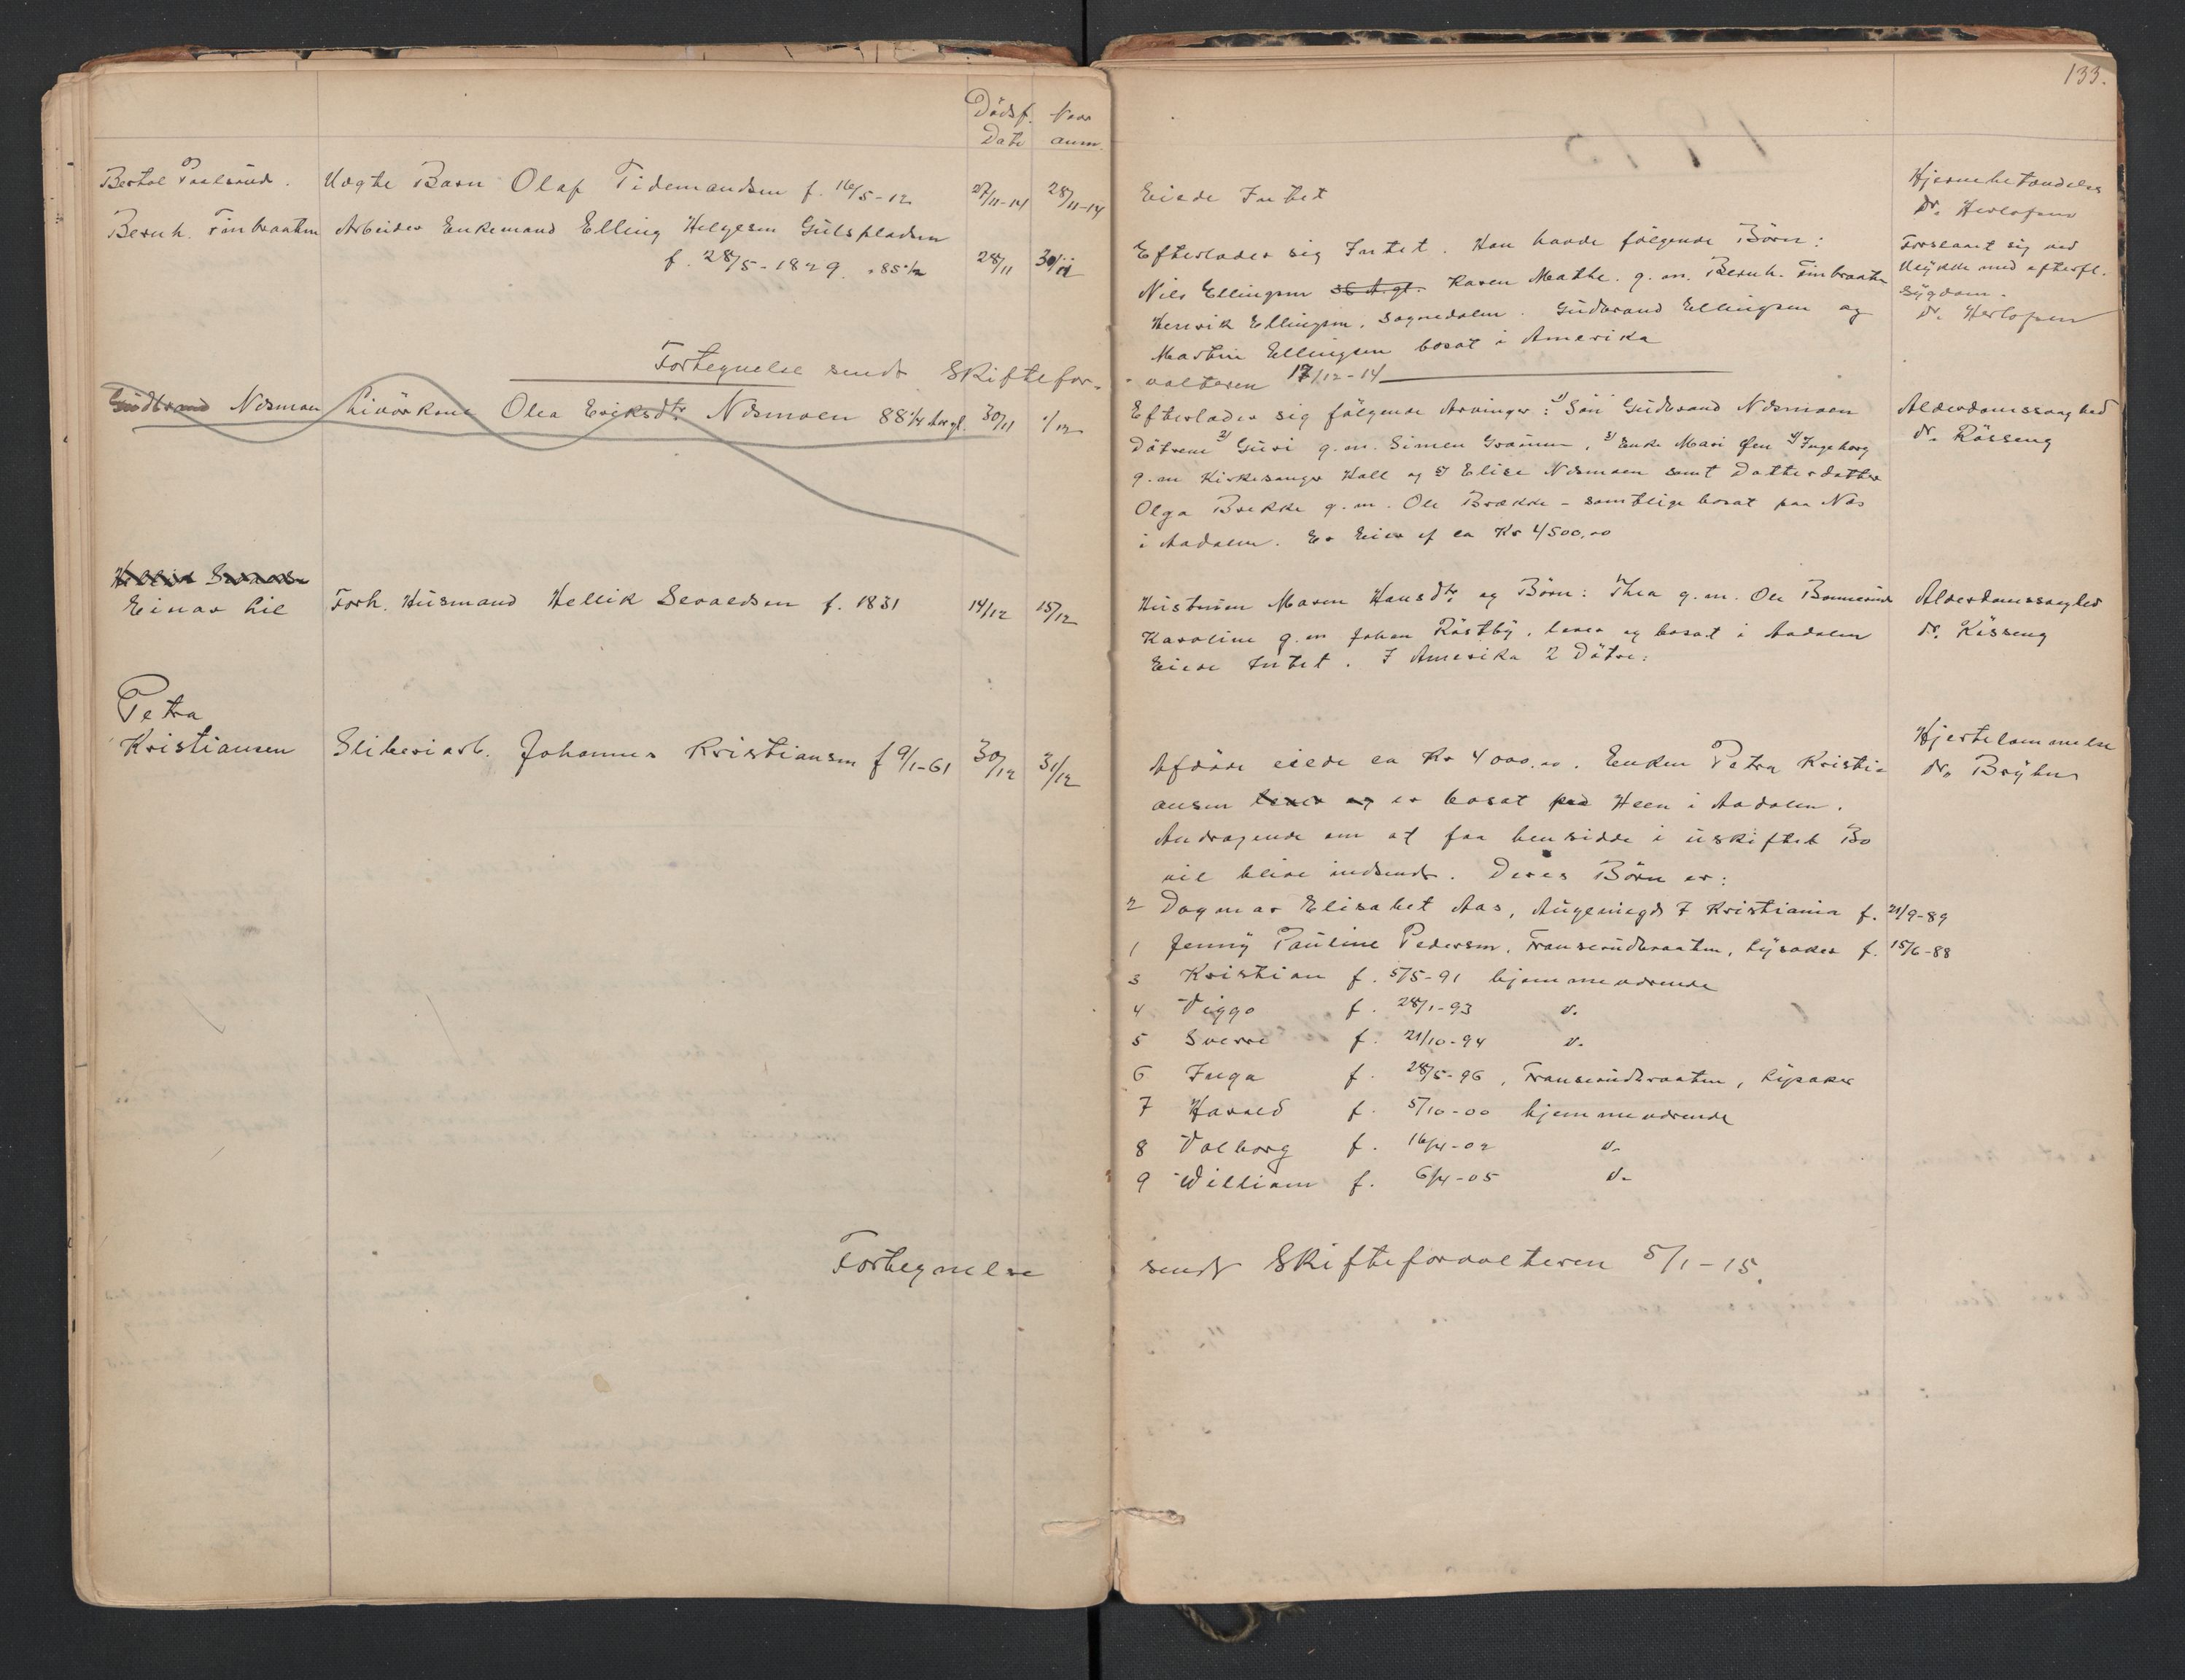 Dödsf. Naar
Dato anm.
Bertol Paalsrud. Uægte Barn Olaf Tidemandsen f. 16/5-12 27/11-14 28/11-14
Bernh. Finbraaten Arbeider Enkemand Elling Helgesen Gulspladsen
f. 28/5-1829. 85 1/2 28/11 30/11
Fortegnelse sendt Skiftefor-
Gudbrand Næsmoen Livörkone Olea Eriksdtr Næsmoen 88 1/4 Aar gl. 30/11 1/12
Einar Lie Forh. Husmand Hellik Sevaldsen f. 1831 14/12 15/12
Petra
Kristiansen Sliberiarb. Johannes Kristiansen f 9/1-61 30/12 31/12
Fortegnelse
133.
Eiede Intet
Hjernebetændelse
Dr. Herlofsen
Efterlader sig Intet. Han havde følgende Börn:
Nils Ellingsen Karen Mathe. g.m. Bernh. Finbraaten
Henrik Ellingsen, Sognedalen. Gudbrand Ellingsen og
Martin Ellingsen bosat i Amerika
Forslaaet sig ved
Ulykke med efterfl.
Sygdom.
Dr. Herlofsen
valteren 17/12-14
Efterlader sig følgende Arvinger: 1) Sön Gudbrand Næsmoen
Dötrene 2) Guri g.m. Simen Gramen, 3) Enke Mari Øen 4) Ingeborg
g.m Kirkesanger Hall og 5) Elise Næsmoen samt Datterdatter
Olga Brekke g.m. Ole Brække - samtlige bosat paa Næs
i Aadalen. Er Eier af ca Kr 4500,00
Alderdomssvaghed
Dr. Rösseng
Hustruen Maren Hansdtr og Börn: Thea g.m. Ole Bonnerud
Karoline g.m Johan Röstby, lever og bosat i Aadalen
Eiede Intet. I Amerika 2 Dötre:
Alderdomssvaghed
Dr. Rösseng
Afdöde eiede ca Kr 4000.00. Enken Petra Kristi-
ansen lever og er bosat paa Heen i Aadalen.
Andragende om at faa hensidde i uskiftet Bo
vil blive indsendt. Deres Börn er:
Hjertelammelse
Dr. Bryhn
2 Dagmar Elisabet Aas, Augenigds 7 Kristiania f. 21/9-89
1 Jenny Pauline Pedersen, Franserudbraaten, Lysaker f. 15/6-88
3 Kristian f. 5/5-91 hjemmeværende
4 Viggo f. 28/1-93 d.
5 Sverre f. 21/10-94 d.
6 Inga f. 28/5-96, Franserudbraaten, Lysaker
7 Harald f. 5/10-00 hjemmeværende
8 Valborg f. 16/4-02 d.
9 William f. 6/4-05 d.
sendt Skifteforvalteren 5/1-15.